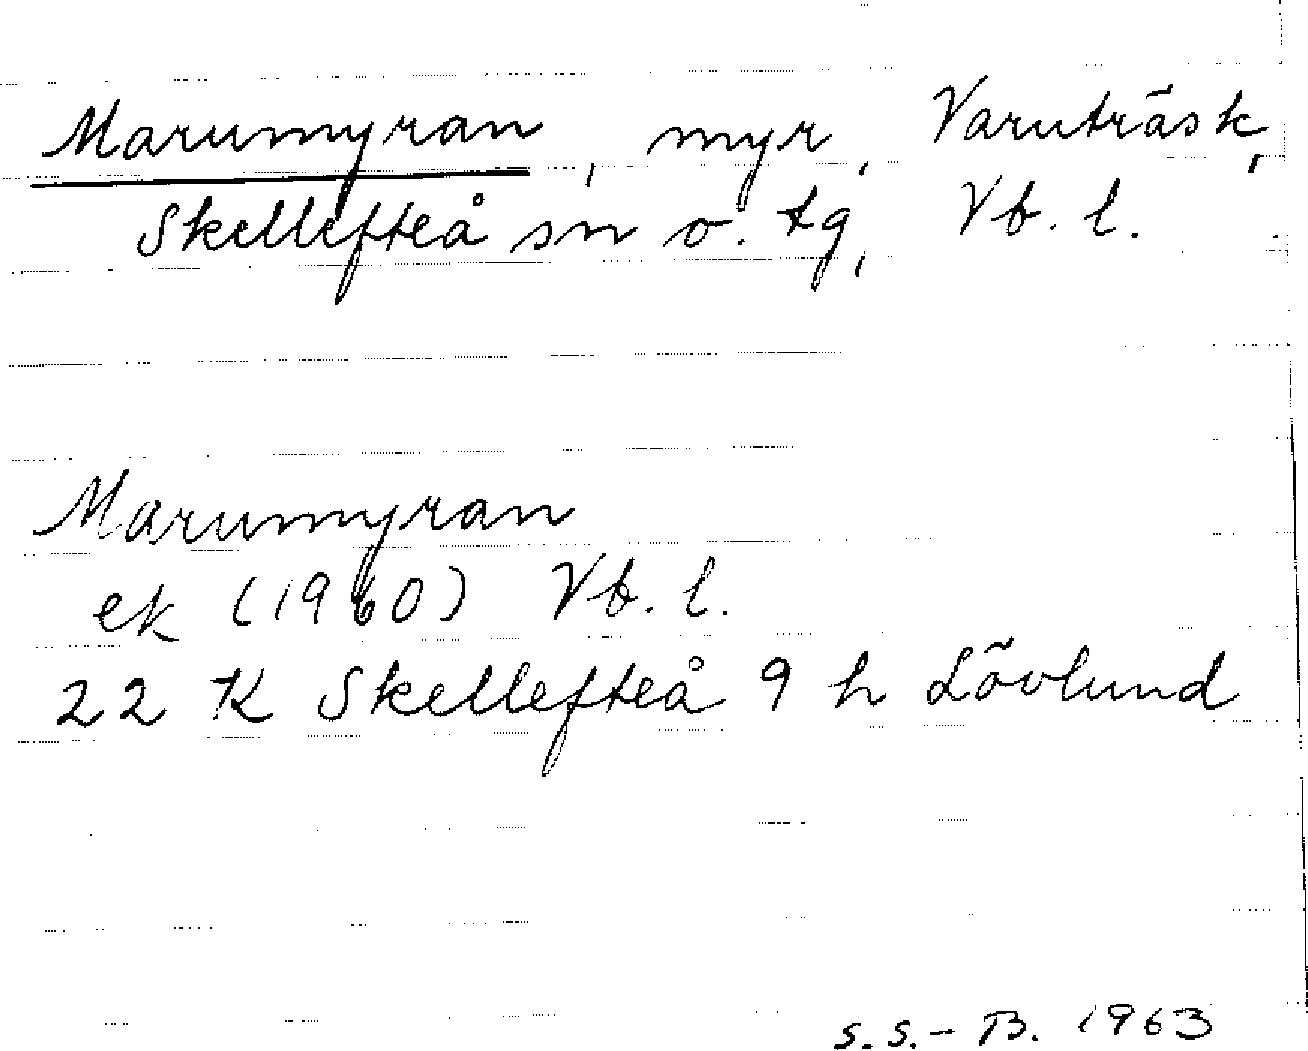 Marumyran, myr, Varuträsk,
Skellefteå sn o. tg, Vb. l.
Marumyran
ek (1960) Vb. l.
22 K Skellefteå 9 h Lövlund
S. S. - B. 1963